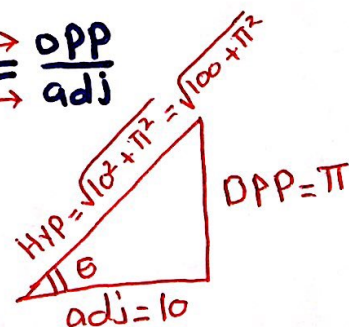 → OPP
= —
→ adj
HYP = √10² + π² = √100 + π²
OPP = π
θ
adj = 10